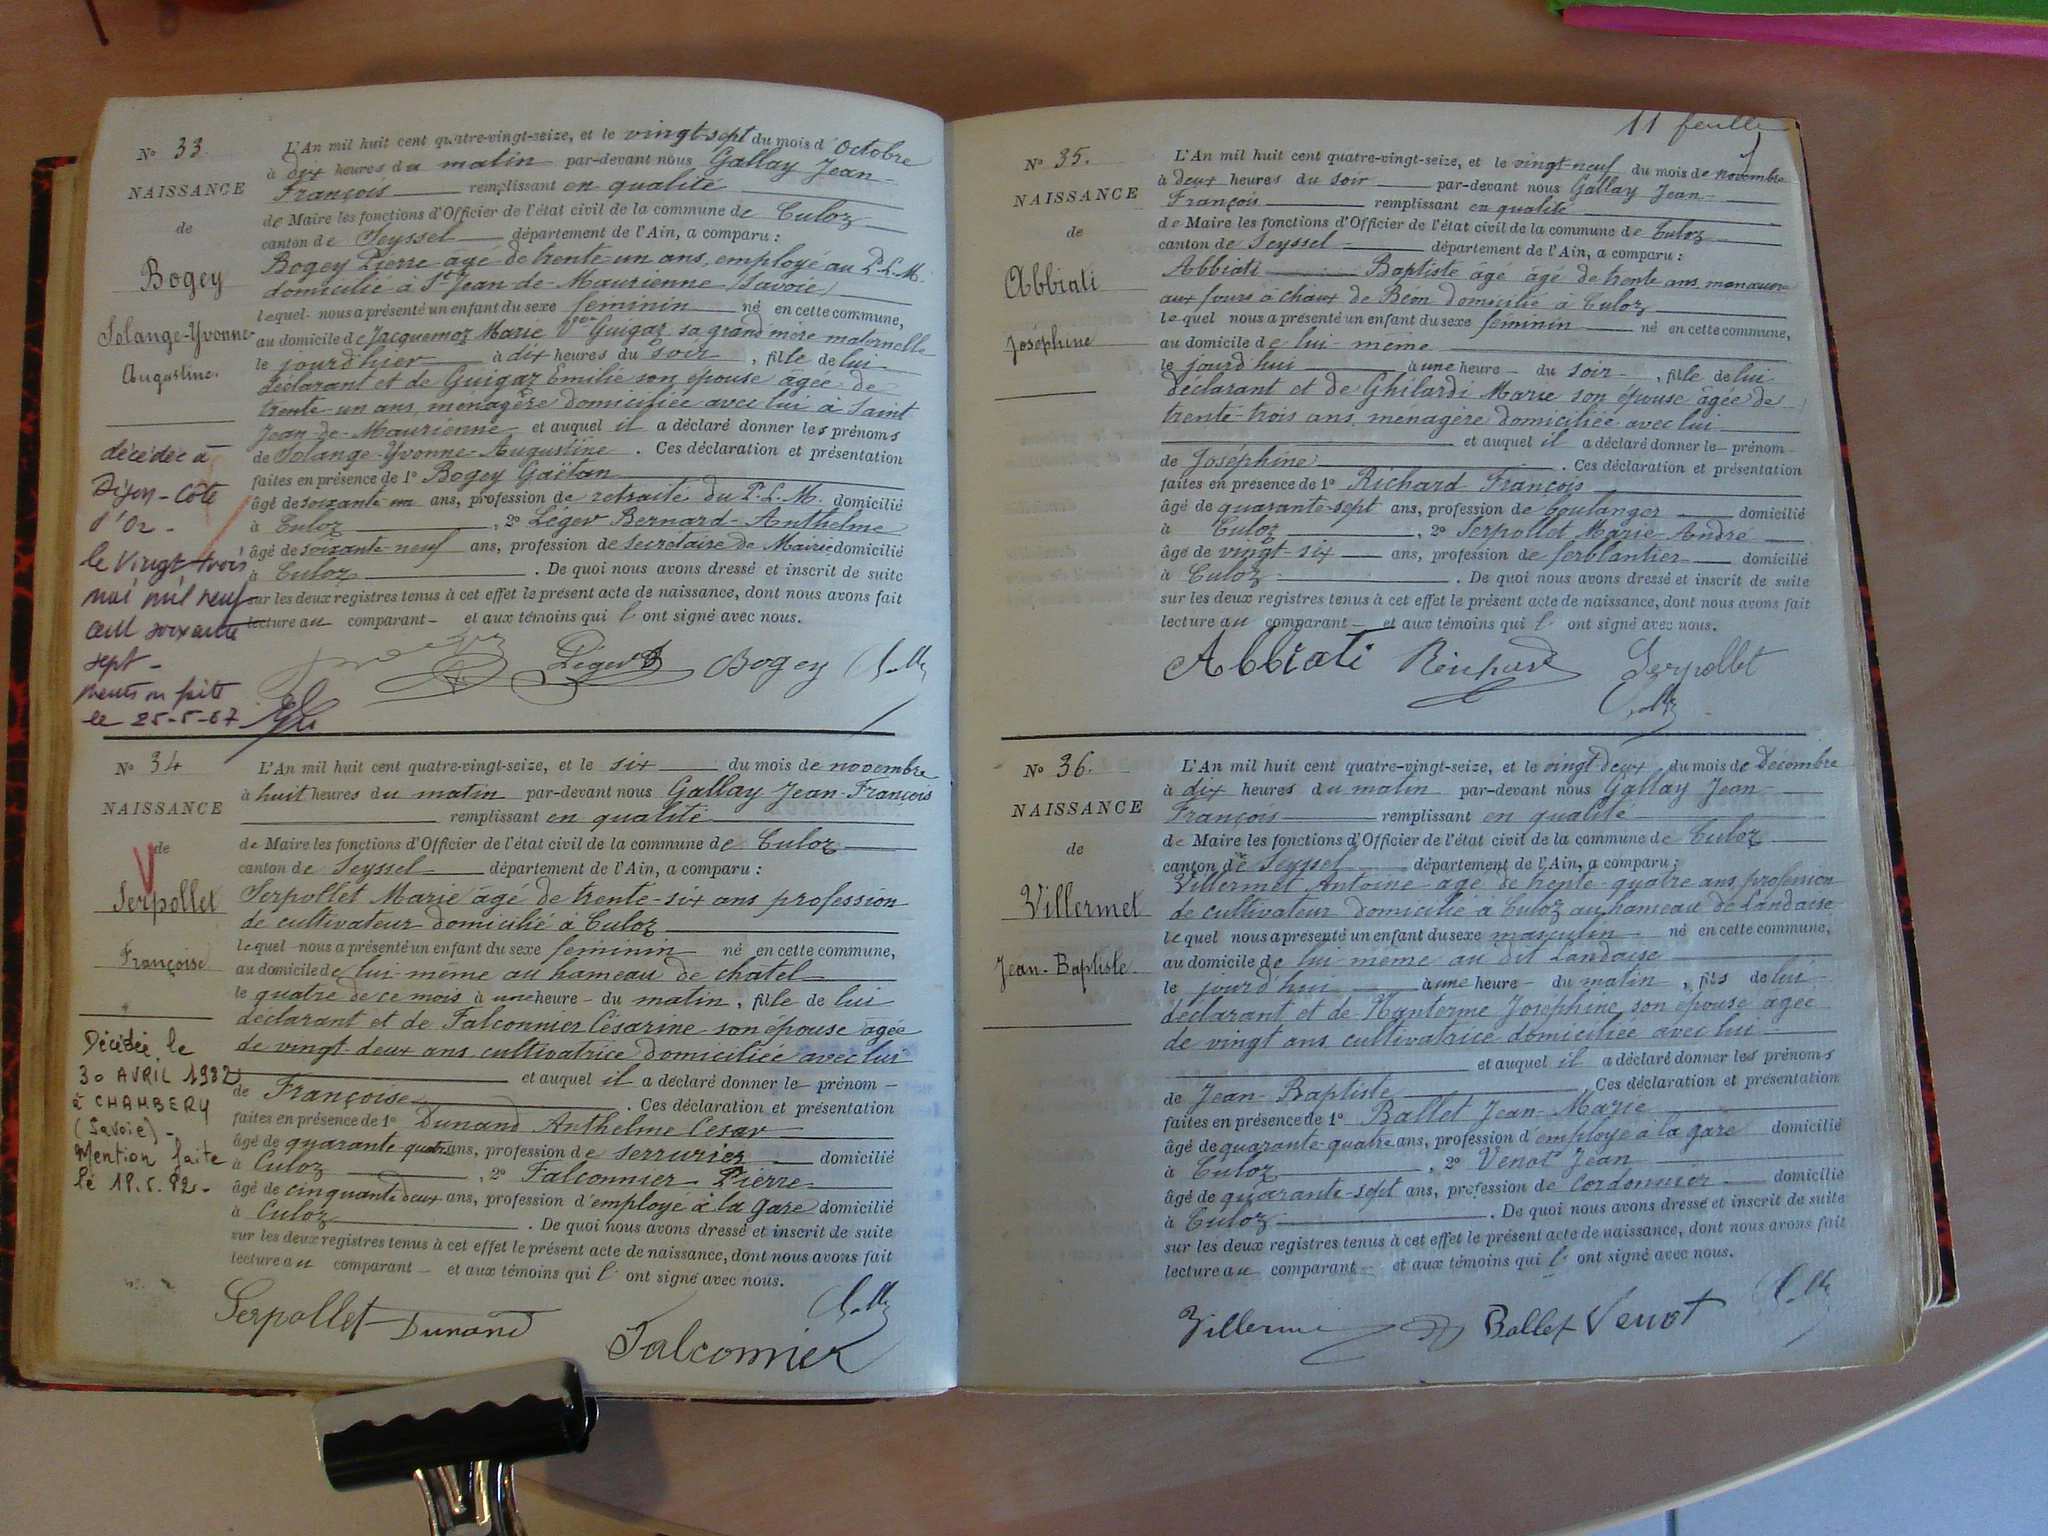 No 33
NAISSANCE
de
Bogey
Solange-Yvonne
Augustine.
décédée à
Dijon - Côte
d'Or -
le vingt trois
mai mil neuf
cent soixante
sept -
mention faite
le 25-5-67
L'An mil huit cent quatre-vingt-seize, et le vingt-sept du mois d'Octobre
à dix heures du matin par-devant nous Gallay Jean-
François remplissant en qualité
de Maire les fonctions d'Officier de l'état civil de la commune de Culoz
canton de Seyssel département de l'Ain, a comparu :
Bogey Pierre âgé de trente-un ans, employé au P.L.M.
domicilié à St Jean-de-Maurienne (Savoie)
lequel nous a présenté un enfant du sexe féminin né en cette commune,
au domicile de Jacquemoz Marie Vve Guigaz sa grand'mère maternelle
le jourd'hier à dix heures du soir, fille de lui
déclarant et de Guigaz Emilie son épouse âgée de
trente-un ans, ménagère domiciliée avec lui à Saint
Jean-de-Maurienne et auquel il a déclaré donner les prénoms
de Solange-Yvonne-Augustine. Ces déclaration et présentation
faites en présence de 1° Bogey Gaëtan
âgé de soixante-un ans, profession de retraité du P.L.M. domicilié
à Culoz, 2° Léger Bernard-Anthelme
âgé de soixante-neuf ans, profession de secrétaire de Mairie domicilié
à Culoz. De quoi nous avons dressé et inscrit de suite
sur les deux registres tenus à cet effet le présent acte de naissance, dont nous avons fait
lecture au comparant - et aux témoins qui l'ont signé avec nous.
Léger B Bogey
No 34
NAISSANCE
de
V
Serpollet
Françoise
Décédée le
30 AVRIL 1982
à CHAMBERY
(Savoie) -
Mention faite
le 18.5.82 -
L'An mil huit cent quatre-vingt-seize, et le six du mois de novembre
à huit heures du matin par-devant nous Gallay Jean-François
remplissant en qualité
de Maire les fonctions d'Officier de l'état civil de la commune de Culoz
canton de Seyssel département de l'Ain, a comparu :
Serpollet Marie âgé de trente-six ans profession
de cultivateur domicilié à Culoz
lequel nous a présenté un enfant du sexe féminin né en cette commune,
au domicile de lui-même au hameau de châtel
le quatre de ce mois à une heure - du matin, fille de lui
déclarant et de Falconnier Césarine son épouse âgée
de vingt-deux ans cultivatrice domiciliée avec lui
et auquel il a déclaré donner le prénom -
de Françoise. Ces déclaration et présentation
faites en présence de 1° Dunand Anthelme Cesar
âgé de quarante quatre ans, profession de serrurier domicilié
à Culoz, 2° Falconnier Pierre
âgé de cinquante deux ans, profession d'employé à la gare domicilié
à Culoz. De quoi nous avons dressé et inscrit de suite
sur les deux registres tenus à cet effet le présent acte de naissance, dont nous avons fait
lecture au comparant - et aux témoins qui l'ont signé avec nous.
Serpollet Dunand
Falconnier
11 feuille
No 35.
NAISSANCE
de
Abbiati
Joséphine
L'An mil huit cent quatre-vingt-seize, et le vingt-neuf du mois de novembre
à deux heures du soir par-devant nous Gallay Jean-
François remplissant en qualité
de Maire les fonctions d'Officier de l'état civil de la commune de Culoz
canton de Seyssel département de l'Ain, a comparu :
Abbiati Baptiste âgé âgé de trente ans manœuvre
aux fours à chaux de Béon domicilié à Culoz
lequel nous a présenté un enfant du sexe féminin né en cette commune,
au domicile de lui-même
le jourd'hui à une heure - du soir -, fille de lui
déclarant et de Ghilardi Marie son épouse âgée de
trente-trois ans, ménagère domiciliée avec lui
et auquel il a déclaré donner le - prénom -
de Joséphine. Ces déclaration et présentation
faites en présence de 1° Richard François
âgé de quarante-sept ans, profession de boulanger domicilié
à Culoz, 2° Serpollet Marie André
âgé de vingt-six ans, profession de ferblantier domicilié
à Culoz. De quoi nous avons dressé et inscrit de suite
sur les deux registres tenus à cet effet le présent acte de naissance, dont nous avons fait
lecture au comparant - et aux témoins qui l'ont signé avec nous.
Abbiati Richard Serpollet
No 36.
NAISSANCE
de
Villermet
Jean-Baptiste
L'An mil huit cent quatre-vingt-seize, et le vingt-deux du mois de Décembre
à dix heures du matin par-devant nous Gallay Jean-
François remplissant en qualité
de Maire les fonctions d'Officier de l'état civil de la commune de Culoz
canton de Seyssel département de l'Ain, a comparu :
Villermet Antoine âgé de trente-quatre ans profession
de cultivateur domicilié à Culoz au hameau de Landaise
lequel nous a présenté un enfant du sexe masculin né en cette commune,
au domicile de lui-même au dit Landaise
le jourd'hui à une heure - du matin, fils de lui
déclarant et de Nanterme Joséphine son épouse âgée
de vingt ans cultivatrice domiciliée avec lui
et auquel il a déclaré donner les prénoms
de Jean-Baptiste. Ces déclaration et présentation
faites en présence de 1° Ballet Jean-Marie
âgé de quarante-quatre ans, profession d'employé à la gare domicilié
à Culoz, 2° Venot Jean
âgé de quarante-sept ans, profession de cordonnier domicilié
à Culoz. De quoi nous avons dressé et inscrit de suite
sur les deux registres tenus à cet effet le présent acte de naissance, dont nous avons fait
lecture au comparant - et aux témoins qui l'ont signé avec nous.
Ballet Venot